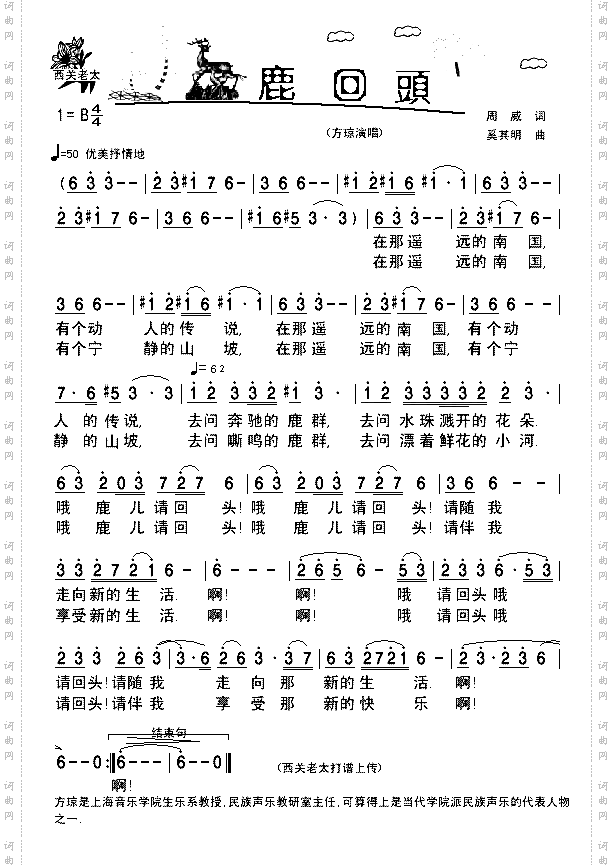 西关老太
鹿回頭
1=B 4/4
周威 词
(方琼演唱)
奚其明 曲
=50 优美抒情地
(6 3 3 - - | 2 3 #1 7 6 - | 3 6 6 - - | #1 2 #1 6 #1 · 1 | 6 3 3 - - |
2 3 #1 7 6 - | 3 6 6 - - | #1 6 #5 3 · 3) | 6 3 3 - - | 2 3 #1 7 6 - |
在那遥 远的南 国,
在那遥 远的南 国,
3 6 6 - - | #1 2 #1 6 #1 · 1 | 6 3 3 - - | 2 3 #1 7 6 - | 3 6 6 - - |
有个动 人的传 说, 在那遥 远的南 国, 有个动
有个宁 静的山 坡, 在那遥 远的南 国, 有个宁
=62
7 · 6 #5 3 · 3 | 1 2 3 3 2 #1 3 · | 1 2 3 3 3 3 2 2 3 · |
人 的传说, 去问 奔驰的鹿群, 去问 水珠溅开的花朵.
静 的山坡, 去问 嘶鸣的鹿群, 去问 漂着鲜花的小河.
6 3 2 0 3 7 2 7 6 | 6 3 2 0 3 7 2 7 6 | 3 6 6 - - |
哦 鹿 儿请回 头! 哦 鹿 儿请回 头! 请随我
哦 鹿 儿请回 头! 哦 鹿 儿请回 头! 请伴我
3 3 2 7 2 1 6 - | 6 - - - | 2 6 5 6 - 5 3 | 2 3 3 6 · 5 3 |
走向新的生 活. 啊! 啊! 哦 请回头 哦
享受新的生 活. 啊! 啊! 哦 请回头 哦
2 3 3 2 6 3 | 3 · 6 2 6 3 · 3 7 | 6 3 2721 6 - | 2 3 3 - 6
请回头! 请随我 走 向 那 新的生 活. 啊!
请回头! 请伴我 享 受 那 新的快 乐 啊!
结束句
6 - - 0 :‖ 6 - - - | 6 - - 0 ‖
(西关老太打谱上传)
啊!
方琼是上海音乐学院生乐系教授,民族声乐教研室主任,可算得上是当代学院派民族声乐的代表人物
之一.
词曲网